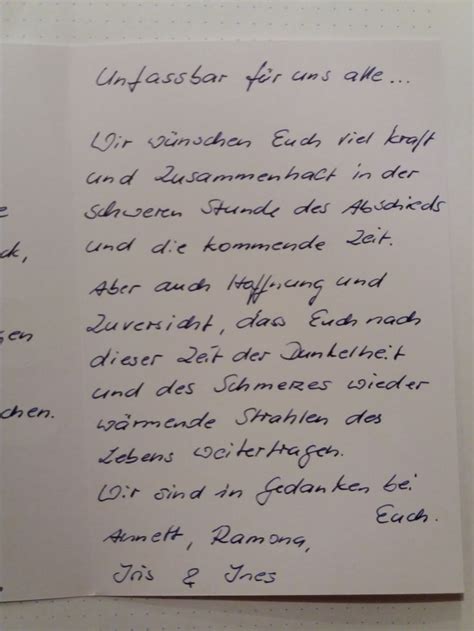 Unfassbar für uns alle...
Wir wünschen Euch viel Kraft
und Zusammenhalt in der
schweren Stunde des Abschieds
und die kommende Zeit.
e
ck,
Aber auch Hoffnung und
Zuversicht, dass Euch nach
gen
dieser Zeit der Dunkelheit
und des Schmerzes wieder
chen.
wärmende Strahlen des
Lebens weitertragen.
Wir sind in Gedanken bei
Euch.
Annett, Ramona,
Iris & Ines